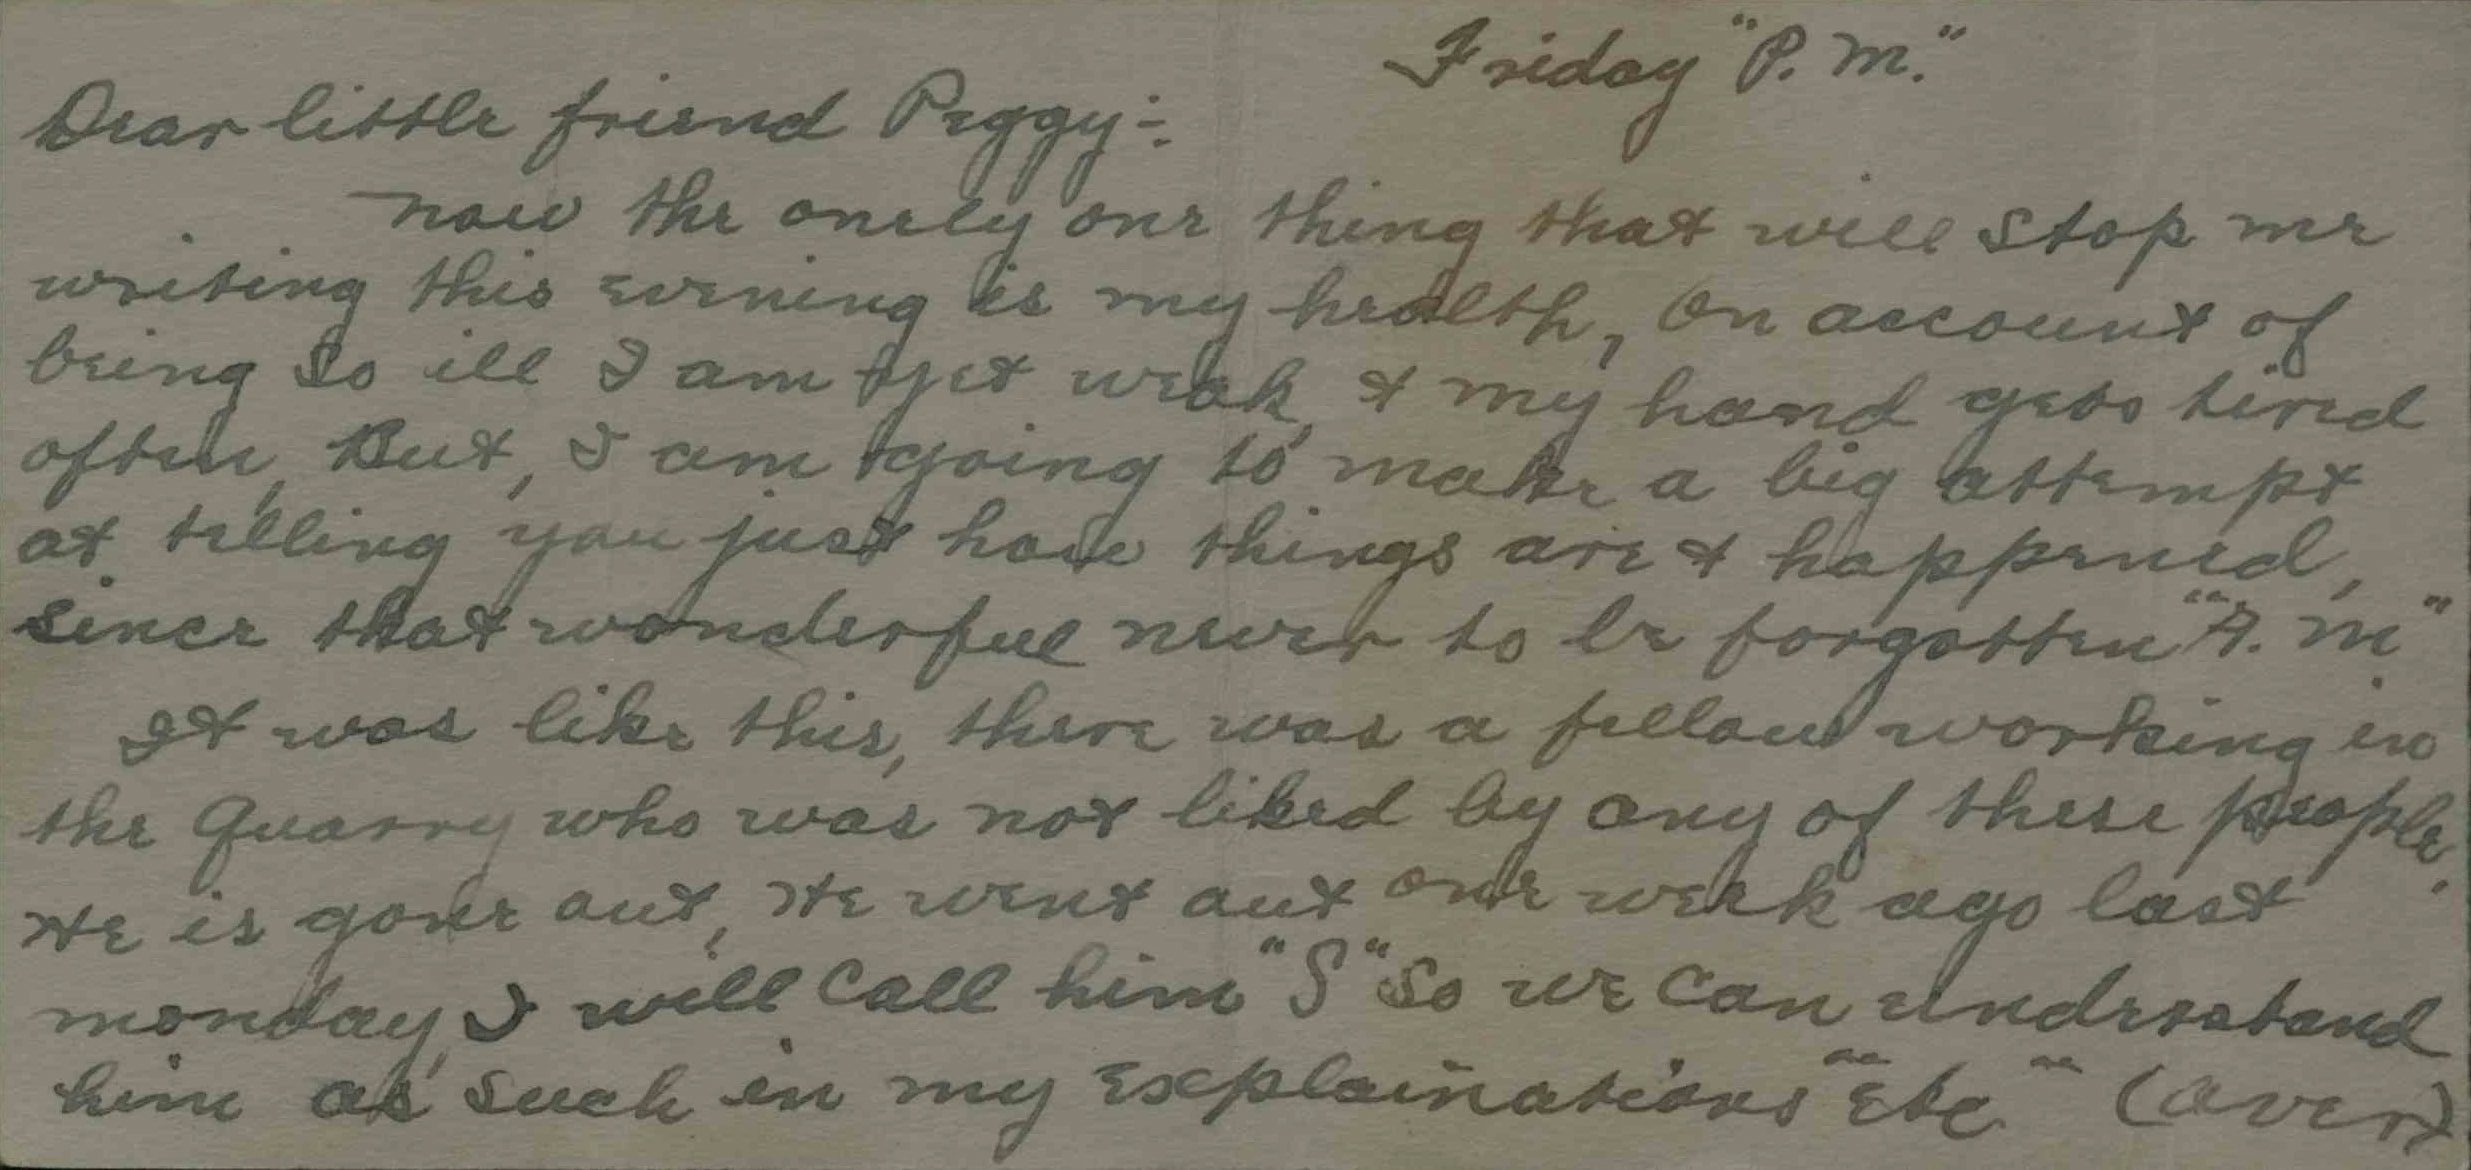 Friday "P. M."
Dear little friend Peggy:-
Now the onely one thing that will stop me
writing this evening is my health, On account of
being so ill I am yet weak, & my hand gets tired
often, But, I am going to make a big attempt
at telling you just how things are & happened,
since that wonderful never to be forgotten "A. M"
It was like this, there was a fellow working in
the Quarry who was not liked by any of these people.
He is gone out, He went out one week ago last
monday, I will call him "S" So we can understand
him as such in my Explainations "Etc" (over)